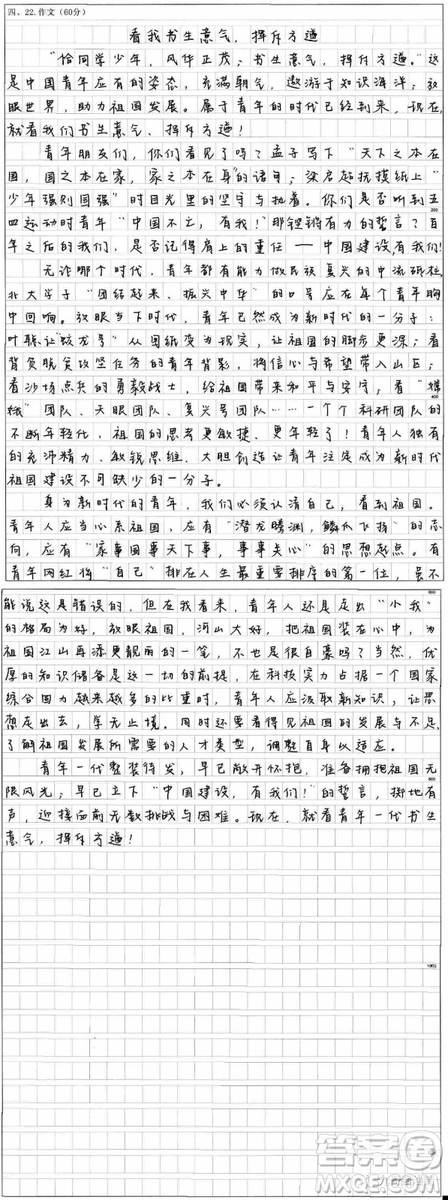 四、22.作文（60分）
看我书生意气，挥斥方遒
"恰同学少年，风华正茂；书生意气，挥斥方遒。"这
是中国青年应有的姿态，充满朝气，遨游于知识海洋；放
眼世界，助力祖国发展。属于青年的时代已经到来，现在，
就看我们书生意气、挥斥方遒！
青年朋友们，你们看见了吗？孟子写下"天下之本在
国，国之本在家，家之本在身"的语句；梁启超抚摸纸上"
少年强则国强"时目光里的坚守与执着。你们是否听到五
200
四运动时青年"中国不亡，有我！"那铿锵有力的誓言？百
年之后的我们，是否记得肩上的重任——中国建设有我们！
无论哪个时代，青年都有能力做民族复兴的中流砥柱，
北大学子"团结起来、振兴中华"的口号应在每个青年胸
中回响。放眼当下时代，青年已然成为新时代的一分子：
叶聪让"蛟龙号"从图纸变为现实，让祖国的脚步更深；看
背负脱贫攻坚任务的青年背影，将信心与希望带入山区；
看沙场点兵的勇毅战士，给祖国带来和平与安宁；看"嫦
400
娥"团队、天眼团队、复兴号团队……一个个科研团队的
不断年轻化，祖国的思考更敏捷、更年轻了！青年人独有
的充沛精力、敏锐思维、大胆创造让青年注定成为新时代
祖国建设不可缺少的一分子。
身为新时代的青年，我们必须认清自己，看到祖国。
青年人应当心系祖国，应有"潜龙腾渊，鳞爪飞扬"的志
向，应有"家事国事天下事，事事关心"的思想起点。有
青年网红将"自己"排在人生最重要排序的第一位，虽不
600
能说这是错误的，但在我看来，青年人还是走出"小我"
的格局为好，放眼祖国，河山大好，把祖国装在心中，为
祖国江山再添更靓丽的一笔，不也是很自豪吗？当然，优
厚的知识储备是这一切的前提，在科技实力占据一个国家
综合国力越来越多的比重时，青年人应汲取新知识，让思
想走出去，学无止境。同时还要看得见祖国的发展与不足，
了解祖国发展所需要的人才类型，调整自身以适应。
青年一代整装待发，早已敞开怀抱，准备拥抱祖国无
800
限风光；早已立下"中国建设，有我们！"的誓言，掷地有
声，迎接面前无数挑战与困难。现在，就看青年一代书生
意气，挥斥方遒！
1000
答案圈
MXQE.COM